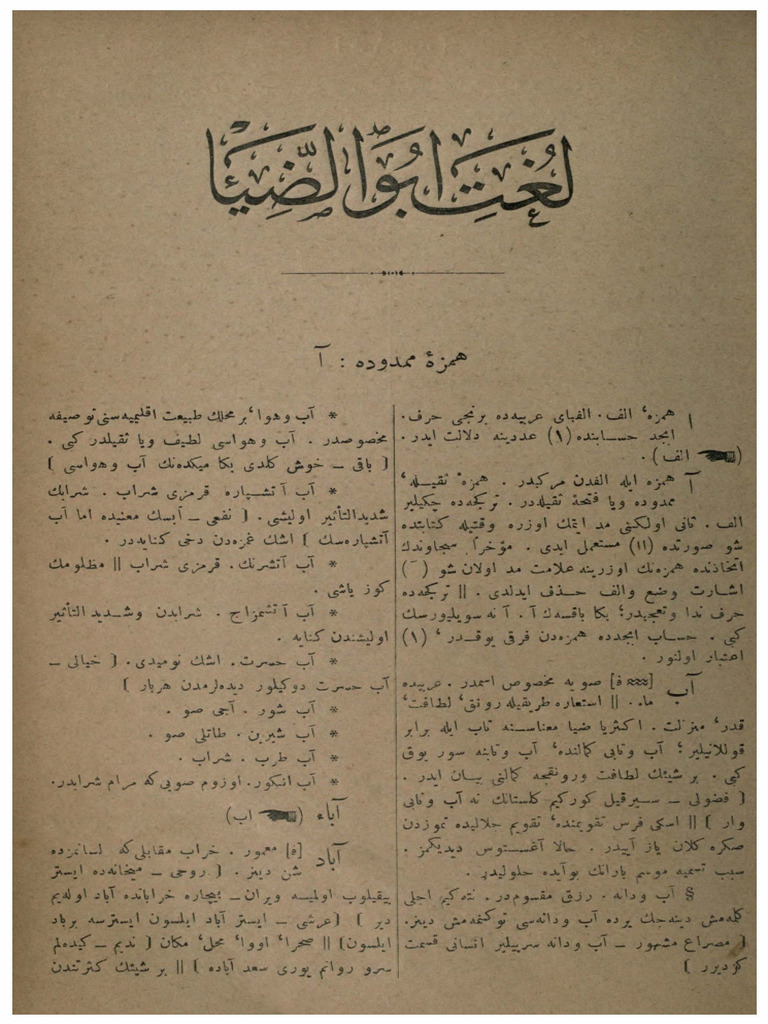 لُغَتِ اَبُوالضِّيَا
همزهٔ ممدوده : آ
ا همزه، الف. الفبای عربیه‌ده برنجی حرف.
ابجد حسابنده (۱) عددینه دلالت ایدر.
(☚ الف).
آ همزه ایله الفدن مرکبدر. همزهٔ ثقیله،
ممدوده ویا فتحهٔ ثقیله‌در. ترکجه‌ده چکیلیر
الف. ثانی اولکنی مد ایتمك اوزره وقتیله کتابتده
شو صورتده (اا) مستعمل ایدی. مؤخراً سجاوندك
اتخاذنده همزه‌نك اوزرینه علامت مد اولان شو (ٓ)
اشارت وضع والف حذف ایدلدی. || ترکجه‌ده
حرف ندا وتعجبدر؛ بکا باقسه‌ك آ. آ نه سویلیورسك
کبی. حساب ابجدده همزه‌دن فرقی یوقدر، (۱)
اعتبار اولنور.
آب [فا] صو یه مخصوص اسمدر. عربیده
ماء. || استعاره طریقیله رونق، لطافت،
قدر، منزلت. اکثریا ضیا معناسنه تاب ایله برابر
قوللانیلیر؛ آب وتابی کمالنده، آب وتابنه سوز یوق
کبی. بر شیئك لطافت ورونقجه کمالنی بیان ایدر.
( فضولی ــ سیرقیل کورکیم کلستانك نه آب وتابی
وار ) || اسکی فرس تقویمنده، تقویم جلالیده تموزدن
صکره کلان یاز آییدر. حالا آغستوس دیدیکمز.
سبب تسمیه موسم بارانك بوآیده حلولیدر.
§ آب ودانه. رزق مقسوم‌در. نته‌کیم اجلی
کلمه‌مش دینه‌جك یرده آب ودانه‌سی توکنمه‌مش دینر.
( مصراع مشهور ــ آب ودانه سرپیلیر انسانی قسمت
کزدیرر )
* آب وهوا، بر محلك طبیعت اقلیمیه‌سنی توصیفه
مخصوصدر. آب وهواسی لطیف ویا ثقیلدر کبی.
( باقی ــ خوش کلدی بکا میکده‌نك آب وهواسی )
* آب آتشپاره قرمزی شراب. شرابك
شدیدالتأثیر اولیشی. ( نفعی ــ آبسك معنیده اما آب
آتشپاره‌سك ) اشك غمزه‌دن دخی کنایه‌در.
* آب آتشرنك. قرمزی شراب || مظلومك
کوز یاشی.
* آب آتشمزاج. شرابدن وشدیدالتأثیر
اولیشندن کنایه.
* آب حسرت. اشك نومیدی. ( خیالی ــ
آب حسرت دوکیلور دیده‌لرمدن هربار )
* آب شور. آجی صو.
* آب شیرین. طاتلی صو.
* آب طرب. شراب.
* آب انکور. اوزوم صویی‌که مرام شرابدر.
آباء (☚ اب)
آباد [فا] معمور. خراب مقابلی‌که لسانمزده
شن دینر. ( روحی ــ میخانه‌ده ایستر
ییقیلوب اولمیسه ویران ــ بیچاره خراباتده آباد اوله‌یم
دیر ) (عرشی ــ ایستر آباد ایلسون ایسترسه برباد
ایلسون) || صحرا، اووا، محل، مکان ( ندیم ــ کیده‌لم
سرو روانم یوری سعد آباده ) || بر شیئك کثرتندن